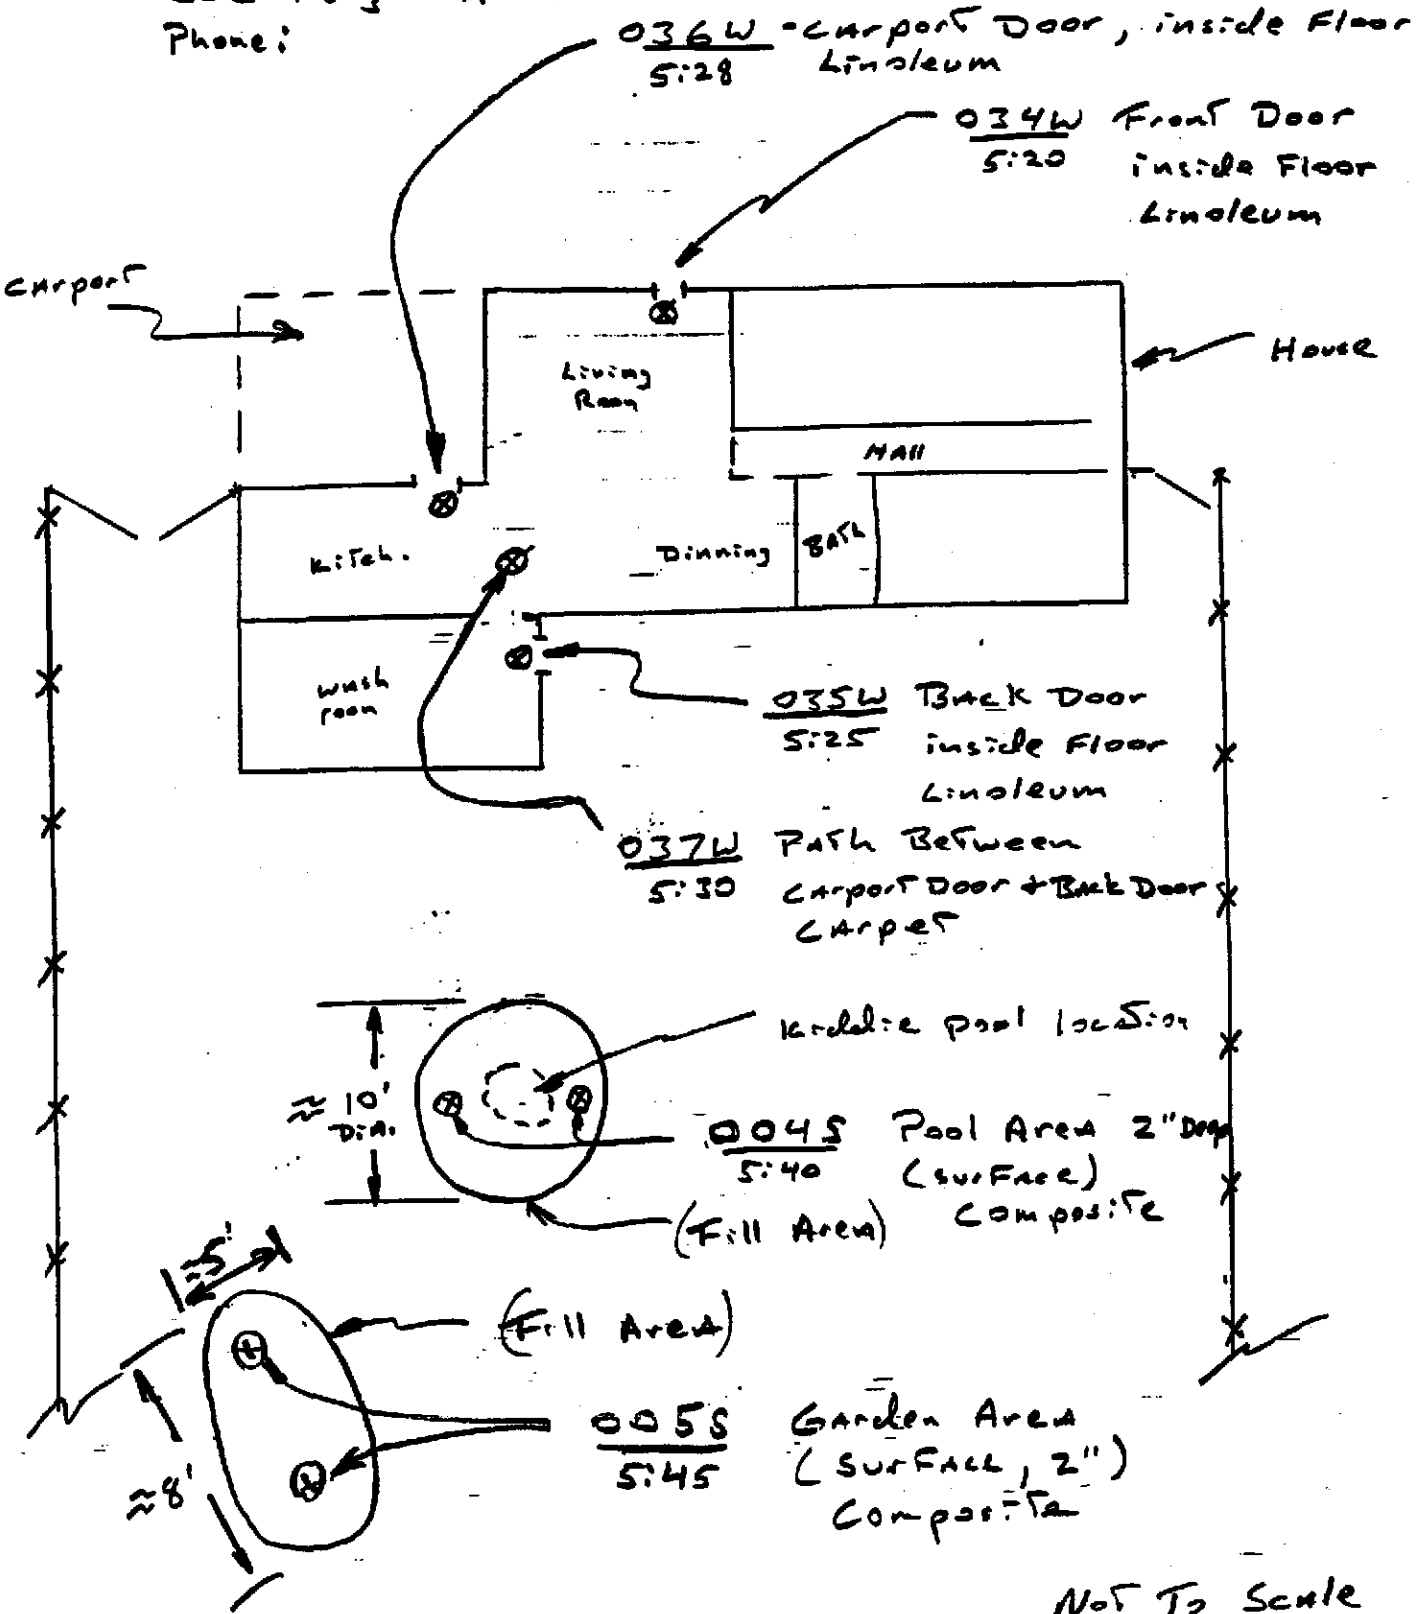 Phone:
036W - Carport Door, inside Floor
5:28 Linoleum
034W Front Door
5:20 inside Floor
Linoleum
Carport
House
Living
Room
Hall
Kitch.
Dinning
Bath
wash
room
035W Back Door
5:25 inside Floor
Linoleum
037W Path Between
5:30 Carport Door + Back Door
Carpet
Kiddie pool location
≈ 10'
Dia.
004S Pool Area 2" Deep
5:40 (surface)
Composite
(Fill Area)
≈5'
(Fill Area)
≈8'
005S Garden Area
5:45 (Surface, 2")
Composite
Not To Scale